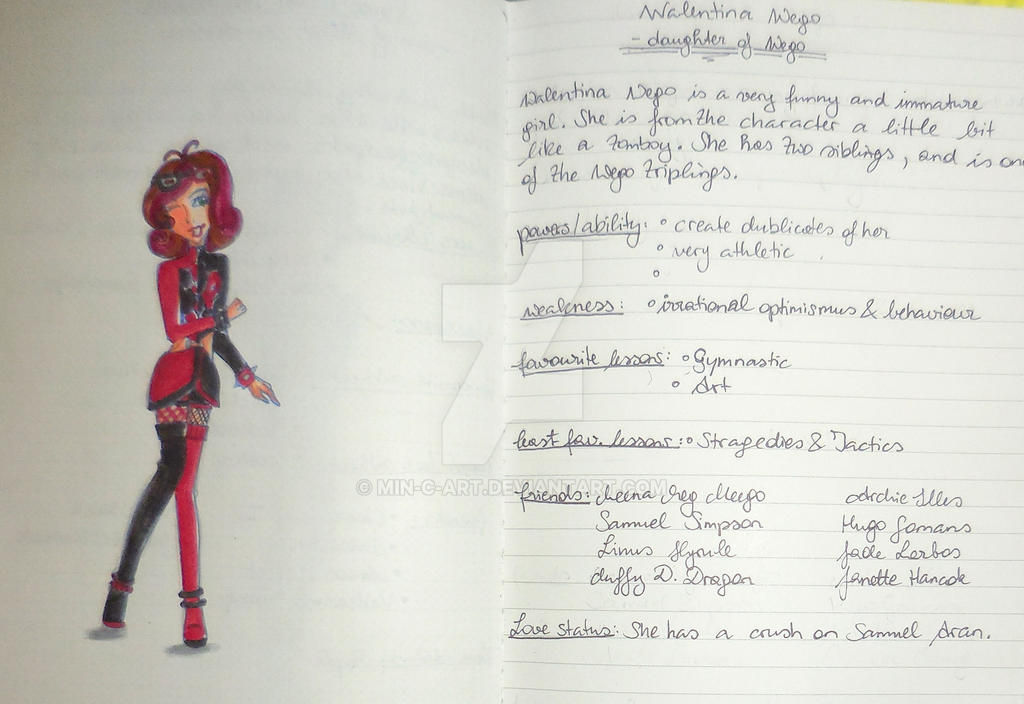 Walentina Wego
- daughter of Wego
Walentina Wego is a very funny and immature
girl. She is from the character a little bit
like a Tomboy. She has two siblings, and is one
of the Wego triplings.
powers/ability: ° create dublicates of her
° very athletic
°
weakness: ° irrational optimismus & behaviour
favourite lessons: ° Gymnastic
° Art
least fav. lessons: ° Stragedies & Tactics
© MIN-C-ART.DEVIANTART.COM
friends: Meena Meg Meego Archie Illes
Samuel Simpson Hugo Gomans
Linus Hyrule Jade Lerbos
duffy D. Dragon Janette Hancok
Love Status: She has a crush on Samuel Aran.